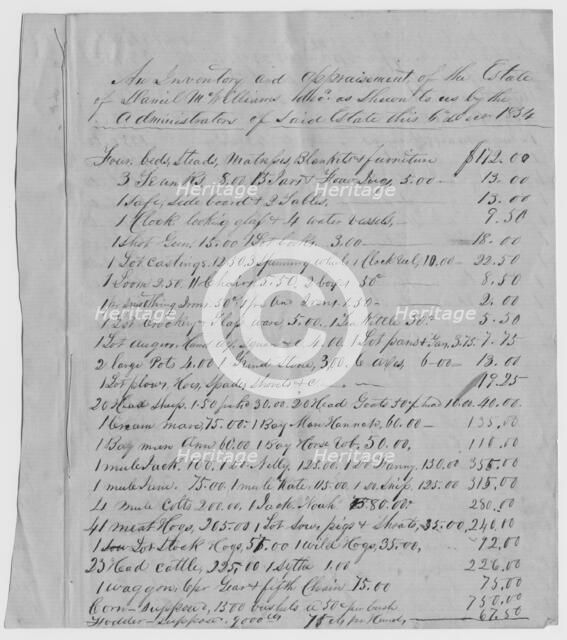 An Inventory and appraisement of the Estate
of Daniel McWilliams as Shewn to us by the
Administrators of Said Estate this 6 Decem 1834
Four beds, Steads, Matrases, Blankets & furniture $172.00
3 Trunks 8.00 15 Jars & Four Jugs 5.00 — 13.00
1 Safe, Side board & 2 Tables, — 15.00
1 Clock looking glass & 4 water vessels, — 9.50
1 Shot Gun, 15.00 1 Lot books 3.00 — 18.00
1 Lot Castings 12.50, 3 Spinning wheels 1 Clock Reel, 10.00 — 22.50
1 Loom 2.50, 11 Chairs 5.50, 2 boxes 50 8.50
1 pr Smoothing Irons, 50 1 pr And Irons 1.50 — 2.00
1 Lot Crockery & Glass ware 5.00, 1 Tea Kettle 50 — 5.50
1 Lot Augers, Hand ax, Square &c 4.00 1 Lot pans & 3.75, 7.75
2 large Pots 4.00 1 Grind Stone, 3.00, 6 axes, 6.00 — 13.00
1 Lot plows, Hoes, Spades, &c — 19.25
20 Head Sheep 1.50 30.00. 20 Head Goats 50 pr head 10.00. 40.00.
1 Cream mare, 75.00. 1 Bay Mare Hannah, 60.00 — 135.00
1 Bay mare Ann 60.00 1 Bay Horse Bob, 50.00, 110.00
1 mule Jack, 100, 1 Do Netty, 125.00, 1 Do Fanny, 130.00 355.00
1 mule June, 75.00, 1 mule Kate, 115.00, 1 Do Snip, 125.00 315.00
4 mule Colts 200.00, 1 Jack Noah 80.00. 280.00
41 meat Hogs, 205.00 1 Lot Sows, pigs & Shoats, 35.00, 240.00
1 Lot Stock Hogs, 1 wild Hogs, 35.00, 92.00
23 Head cattle, 225.00 1 Sythe 1.00 226.00
1 waggon, Gear & fifth Chain 75.00 75.00
Corn — Suppose, 1500 bushels a 50 c per bush 750.00
Fodder — Suppose 9000 75 cts per Hund, — 67.50
© heritage-images.com
heritage-images.com
heritage-images.com
heritage-images.com